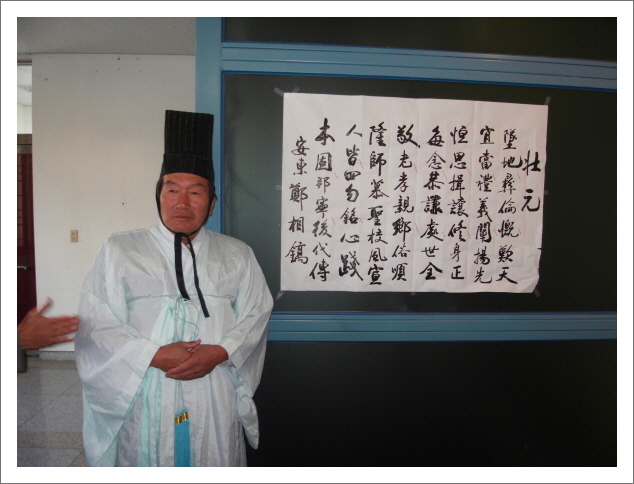 壯元
墜地彛倫慨歎天
宜當禮義闡揚先
恒思揖讓修身正
每念恭謙處世全
敬老孝親鄉俗順
隆師慕聖校風宣
人皆四勿銘心踐
本固邦寧後代傳
安東鄭相鎬